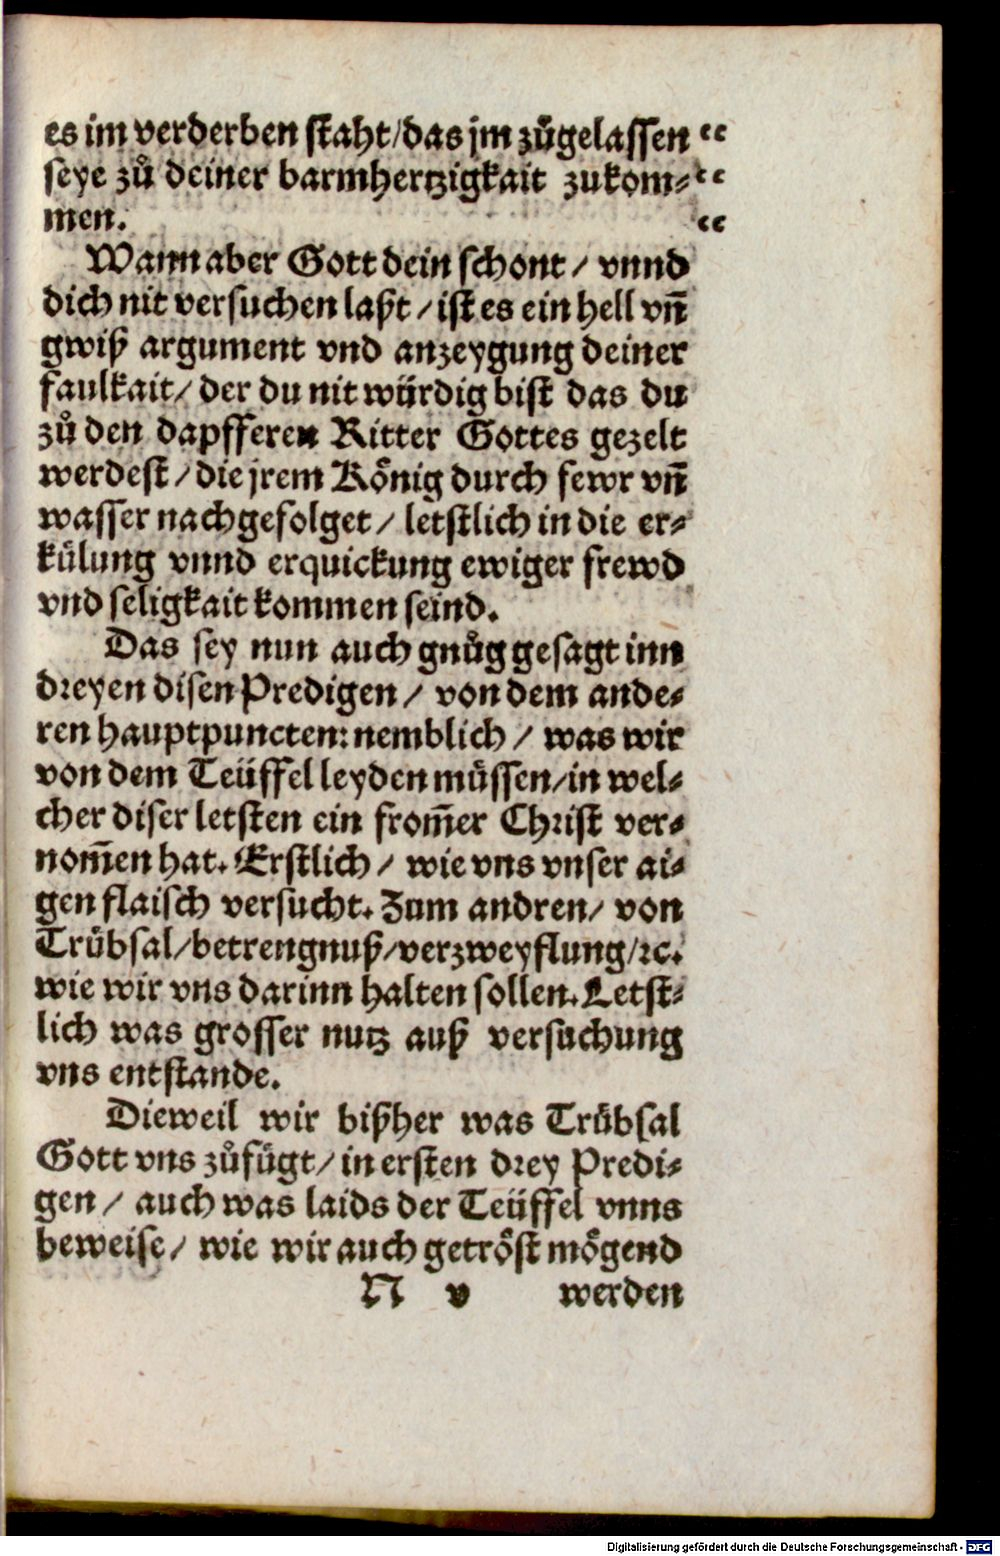 es im verderben staht/das jm zůgelassen “
seye zů deiner barmhertzigkait zukom⸗ “
men. “
Wann aber Gott dein schont / vnnd
dich nit versuchen laßt / ist es ein hell vñ
gwiß argument vnd anzeygung deiner
faulkait/ der du nit würdig bist das du
zů den dapfferen Ritter Gottes gezelt
werdest / die jrem König durch fewr vñ
wasser nachgefolget / letstlich in die er⸗
külung vnnd erquickung ewiger frewd
vnd seligkait kommen seind.
Das sey nun auch gnůg gesagt inn
dreyen disen Predigen / von dem ande⸗
ren hauptpuncten: nemblich / was wir
von dem Teüffel leyden müssen/in wel⸗
cher diser letsten ein from̃er Christ ver⸗
nom̃en hat. Erstlich / wie vns vnser ai⸗
gen flaisch versucht. Zum andren/ von
Trübsal/betrengnuß/verzweyflung/ꝛc.
wie wir vns darinn halten sollen. Letst⸗
lich was grosser nutz auß versuchung
vns entstande.
Dieweil wir bißher was Trübsal
Gott vns zůfügt/in ersten drey Predi⸗
gen / auch was laids der Teüffel vnns
beweise/ wie wir auch getröst mögend
N v werden
Digitalisierung gefördert durch die Deutsche Forschungsgemeinschaft - DFG